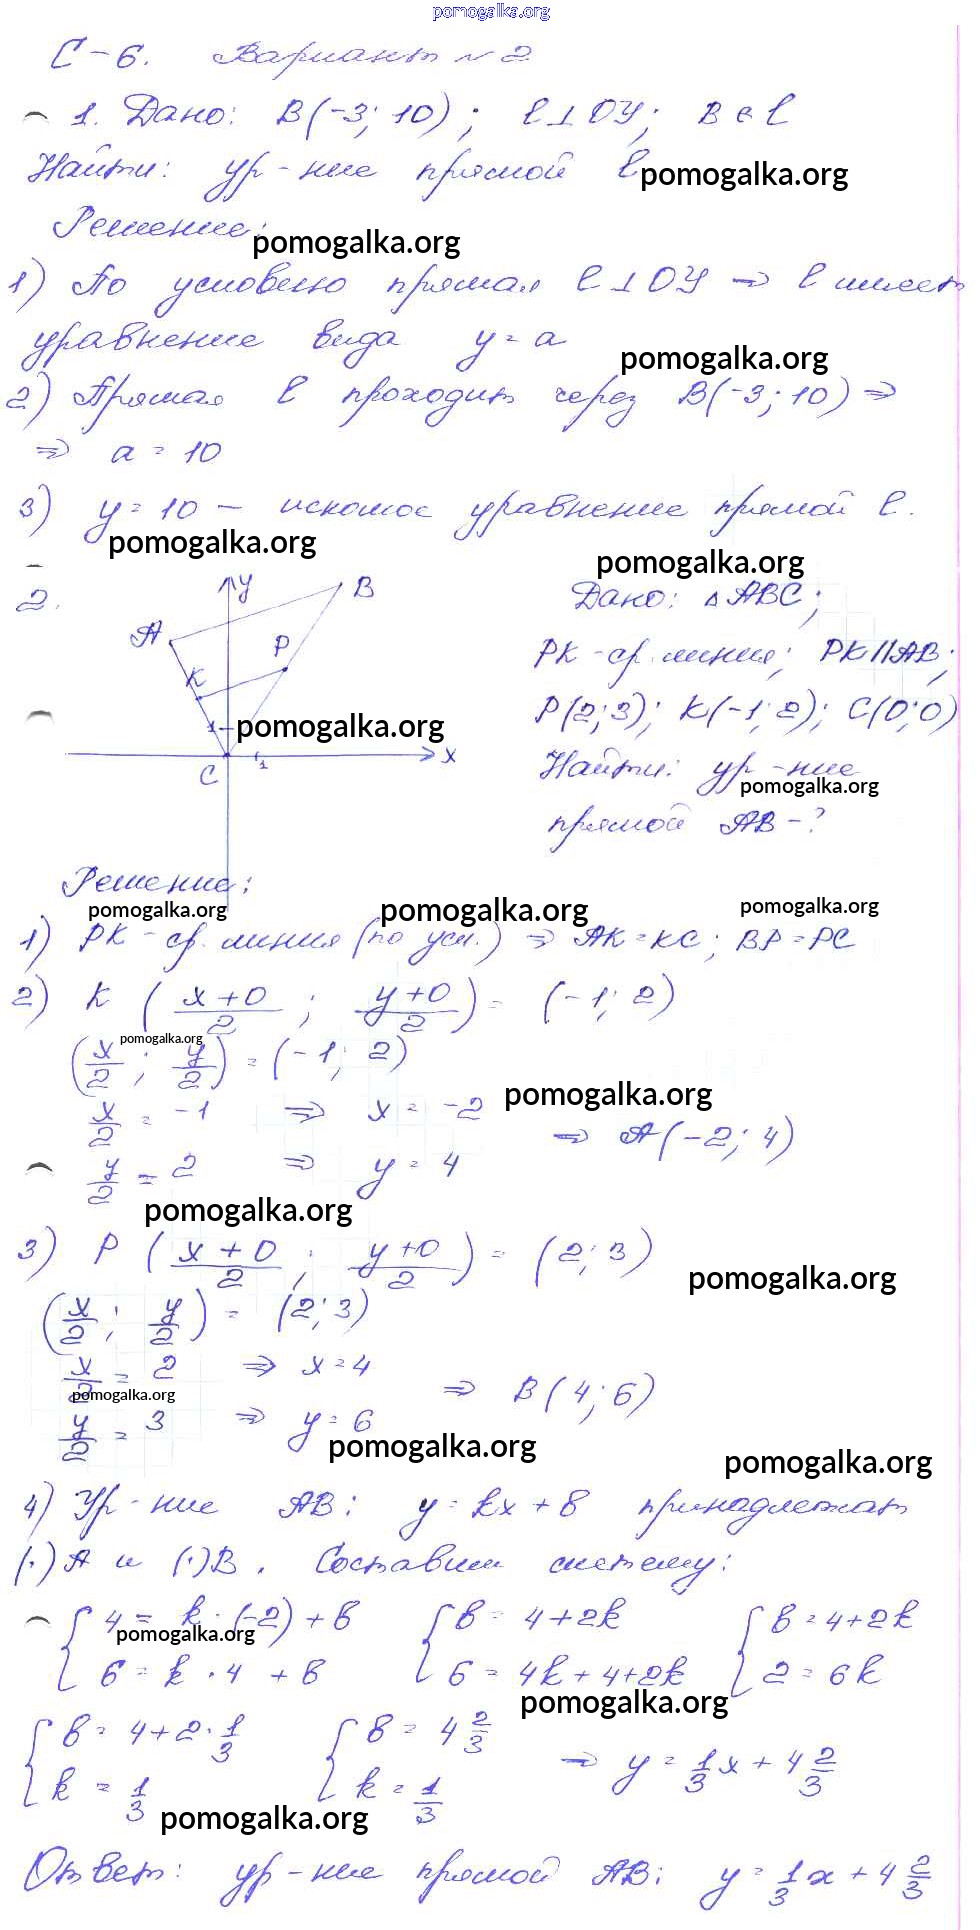 pomogalka.org
С-6. Вариант № 2
1. Дано: B(-3; 10); l⊥OY; B ∈ l
Найти: ур-ние прямой l
pomogalka.org
Решение:
pomogalka.org
1) По условию прямая l⊥OY ⇒ l имеет
уравнение вида y = a
pomogalka.org
2) Прямая l проходит через B(-3; 10) ⇒
⇒ a = 10
3) y = 10 – искомое уравнение прямой l.
pomogalka.org
pomogalka.org
2.
y
B
A
P
K
1
pomogalka.org
x
1
C
Дано: △ABC;
PK - ср. линия; PK||AB;
P(2; 3); K(-1; 2); C(0; 0)
Найти: ур-ние
pomogalka.org
прямой AB - ?
Решение:
pomogalka.org
pomogalka.org
pomogalka.org
1) PK - ср. линия (по усл.) ⇒ AK = KC; BP = PC
2) K ((x+0)/2; (y+0)/2) = (-1; 2)
pomogalka.org
(x/2; y/2) = (-1; 2)
pomogalka.org
x/2 = -1 ⇒ x = -2
⇒ A(-2; 4)
y/2 = 2 ⇒ y = 4
pomogalka.org
3) P ((x+0)/2; (y+0)/2) = (2; 3)
pomogalka.org
(x/2; y/2) = (2; 3)
x/2 = 2 ⇒ x = 4
pomogalka.org
⇒ B(4; 6)
y/2 = 3 ⇒ y = 6
pomogalka.org
pomogalka.org
4) Ур-ние AB: y = kx + b принадлежат
(·)A и (·)B. Составим систему:
{ 4 = k · (-2) + b { b = 4 + 2k { b = 4 + 2k
pomogalka.org
6 = k · 4 + b 6 = 4k + 4 + 2k 2 = 6k
pomogalka.org
{ b = 4 + 2 · 1/3 { b = 4 2/3
⇒ y = 1/3 x + 4 2/3
k = 1/3 k = 1/3
pomogalka.org
Ответ: ур-ние прямой AB: y = 1/3 x + 4 2/3